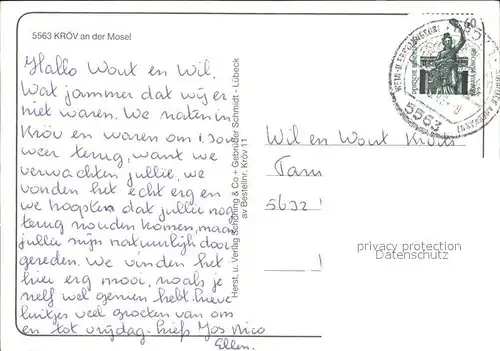 5563 KRÖV an der Mosel
Hallo Wout en Wil,
Wat jammer dat wij er
niet waren. We zaten in
Kröv en waren om 1.30
weer terug, want we
verwachten jullie, we
vonden het echt erg en
we hoopten dat jullie nog
terug zouden komen, maar
jullie zijn natuurlijk door
gereden. We vinden het
hier erg mooi, zoals je
zelf wel gezien hebt. Lieve
luitjes veel groeten van ons
en tot vrijdag. Liefs Jos Nico
Ellen.
Herst. u. Verlag Schöning & Co + Gebrüder Schmidt - Lübeck
av Bestellnr. Kröv 11
60
5563
Wil en Wout
Fam
5632
privacy protection
Datenschutz